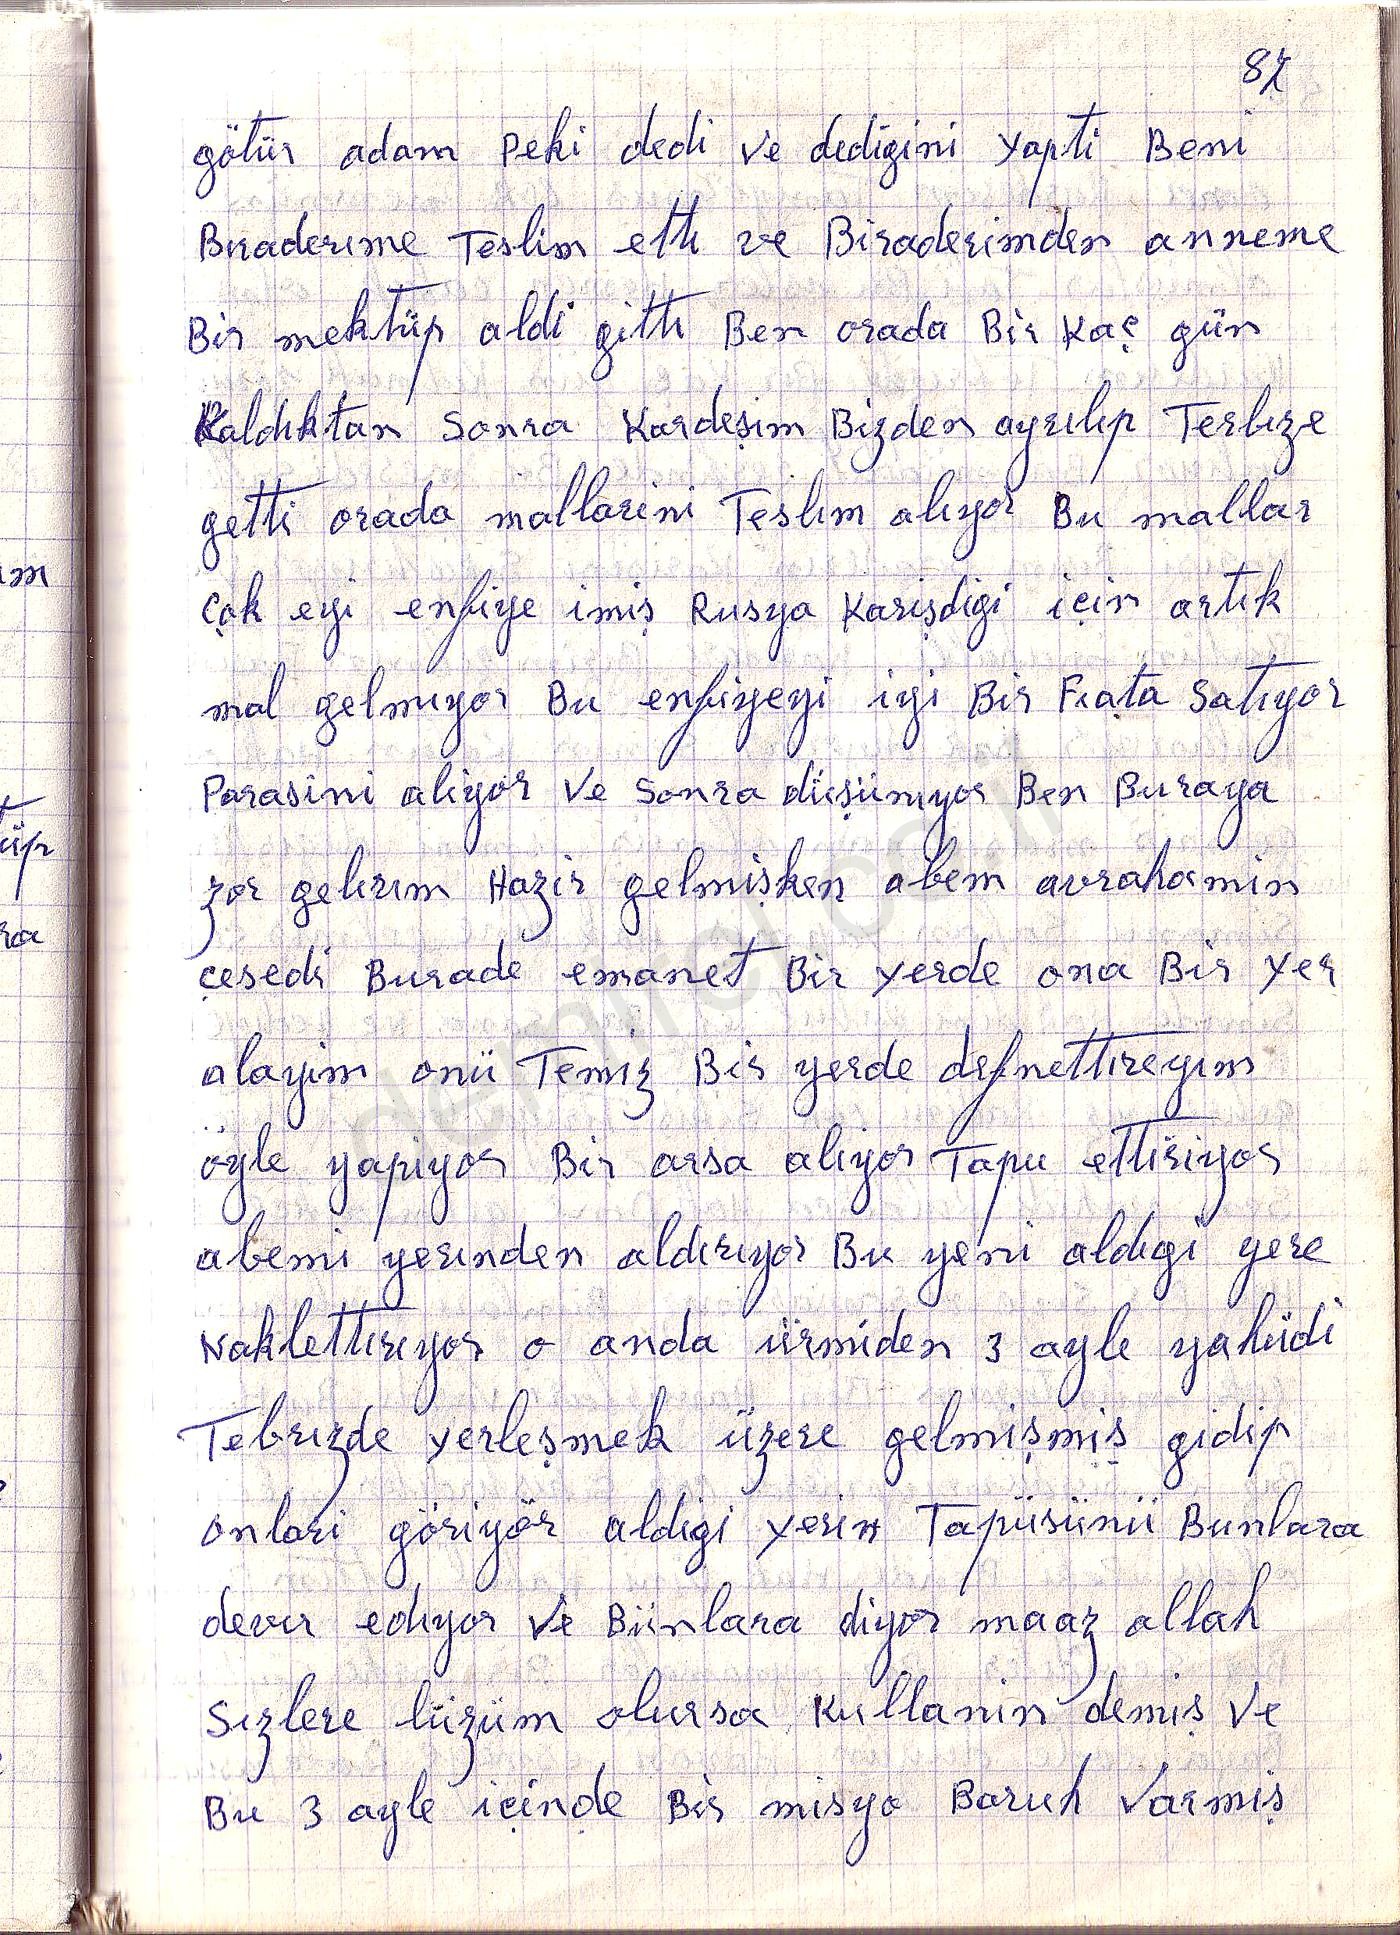 87
götür adam Peki dedi ve dedigini yapti Beni
Biraderime Teslim etti ve Biraderimden anneme
Bir mektüp aldi gitti Ben orada Bir Kaç gün
Kaldiktan Sonra Kardeşim Bizden ayrılıp Terbize
getti orada mallarini Teslim alıyor Bu mallar
Çok eyi enfiye imiş Rusya Karişdigi için artık
mal gelmıyor Bu enfiyeyi iyi Bir Fıata Satıyor
Parasini alıyor ve Sonra düşünıyor Ben Buraya
zor gelırım Hazir gelmişken abem avrahamin
çesedi Burade emanet Bir yerde ona Bir yer
alayim onü Temiz Bir yerde defnettıreyım
öyle yapıyor Bir arsa aliyor Tapu ettiriyor
abemi yerınden aldırıyor Bu yeni aldıgi yere
Naklettırıyor o anda ürmiden 3 ayle yahüdi
Tebrızde yerleşmek üzere gelmişmiş gidip
onlari göriyör aldıgi yerin Tapüsünü Bunlara
devır edıyor ve Bünlara diyor maaz allah
Sızlere lüzüm olursa Kullanin demiş ve
Bu 3 ayle içinde Bir misyo Baruh Varmiş
ım
üp
ra
demirel.co.il